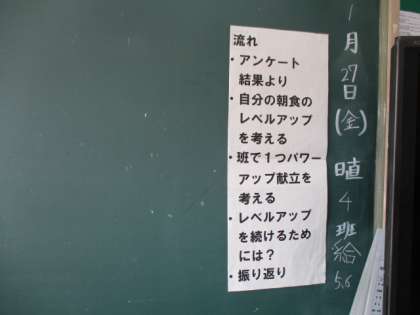 流れ
・アンケート
結果より
・自分の朝食の
レベルアップ
を考える
・班で1つパワー
アップ献立を
考える
・レベルアップ
を続けるため
には？
・振り返り
1月27日(金)
4班
給
5.6